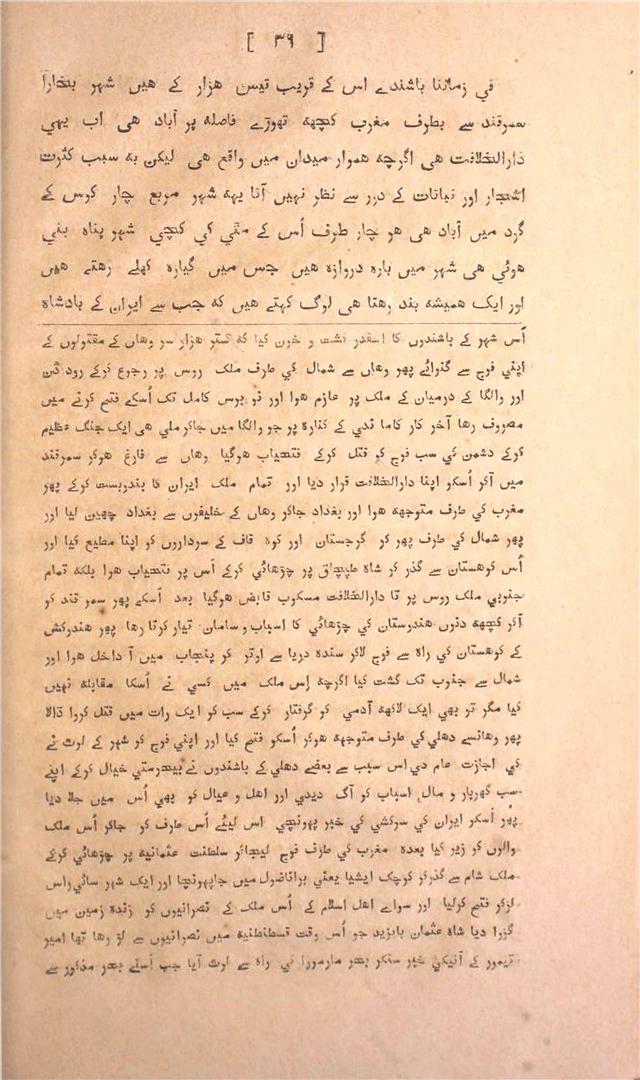 [ ٣٩ ]
في زماننا باشندے اس کے قریب تیس هزار کے هیں شهر بخارا
سمرقند سے بطرف مغرب کچهه تهوڑے فاصله پر آباد هی اب یهي
دارالخلافت هی اگرچه هموار میدان میں واقع هی لیکن به سبب کثرت
اشجار اور نباتات کے دور سے نظر نهیں آتا یهه شهر مربع چار کوس کے
گرد میں آباد هی هر چار طرف اُس کے مٹي کي کچي شهر پناه بني
هوئي هی شهر میں باره دروازه هیں جس میں گیاره کهلے رهتے هیں
اور ایک همیشه بند رهتا هی لوگ کهتے هیں که جب سے ایران کے بادشاه
اُس شهر کے باشندوں کا اسقدر کشت و خون کیا که ستر هزار سر وهاں کے مقتولوں کے
اپني فوج سے گنوائے پهر وهاں سے شمال کي طرف ملک روس پر رجوع کرکے رود ڈن
اور والگا کے درمیان کے ملک پر عازم هوا اور نو برس کامل تک اُسکے فتح کرنے میں
مصروف رها آخر کار کاما ندي کے کناره پر جو والگا میں جاکر ملي هی ایک جنگ عظیم
کرکے دشمن کي سب فوج کو قتل کرکے فتحیاب هوگیا وهاں سے فارغ هوکر سمرقند
میں آکر اُسکو اپنا دارالخلافت قرار دیا اور تمام ملک ایران کا بندوبست کرکے پهر
مغرب کي طرف متوجهه هوا اور بغداد جاکر وهاں کے خلیفوں سے بغداد چهین لیا اور
پهر شمال کي طرف پهر کر گرجستان اور کوه قاف کے سرداروں کو اپنا مطیع کیا اور
اُس کوهستان سے گذر کر شاه قپچاق پر چڑهائي کرکے اُس پر فتحیاب هوا بلکه تمام
جنوبي ملک روس پر تا دارالخلافت مسکوب قابض هوگیا بعد اُسکے پهر سمر قند کو
آکر کچهه دنوں هندوستان کي چڑهائي کا اسباب و سامان تیار کرتا رها پهر هندوکش
کے کوهستان کي راه سے فوج لاکر سنده دریا سے اوتر کر پنجاب میں آ داخل هوا اور
شمال سے جنوب تک گشت کیا اگرچه اِس ملک میں کسي نے اُسکا مقابله نهیں
کیا مگر تو بهي ایک لاکهه آدمي کو گرفتار کرکے سب کو ایک رات میں قتل کروا ڈالا
پهر وهانسے دهلي کي طرف متوجهه هوکر اُسکو فتح کیا اور اپني فوج کو شهر کے لوٹ نے
کي اجازت عام دي اس سبب سے بعضے دهلي کے باشندوں نے بیحرمتي خیال کرکے اپنے
سب گهربار و مال اسباب کو آگ دیدي اور اهل و عیال کو بهي اُس میں جلا دیا
پهر اُسکو ایران کي سرکشي کي خبر پهونچي اس لیئے اُس طرف کو جاکر اُس ملک
والوں کو زیر کیا بعده مغرب کي طرف فوج لیجاکر سلطنت عثمانیه پر چڑهائي کرکے
ملک شام سے گذرکر کوچک ایشیا یعني براناضول میں جاپهونچا اور ایک شهر سائي‌واس
لڑکر فتح کرلیا اور سواے اهل اسلام کے اُس ملک کے نصرانیوں کو زنده زمین میں
گڑوا دیا شاه عثمان بایزید جو اُس وقت قسطنطنیه میں نصرانیوں سے لڑ رها تها امیر
تیمور کے آنیکي خبر سنکر بحر مارمورا کي راه سے لوٹ آیا جب اُسنے بحر مذکور سے